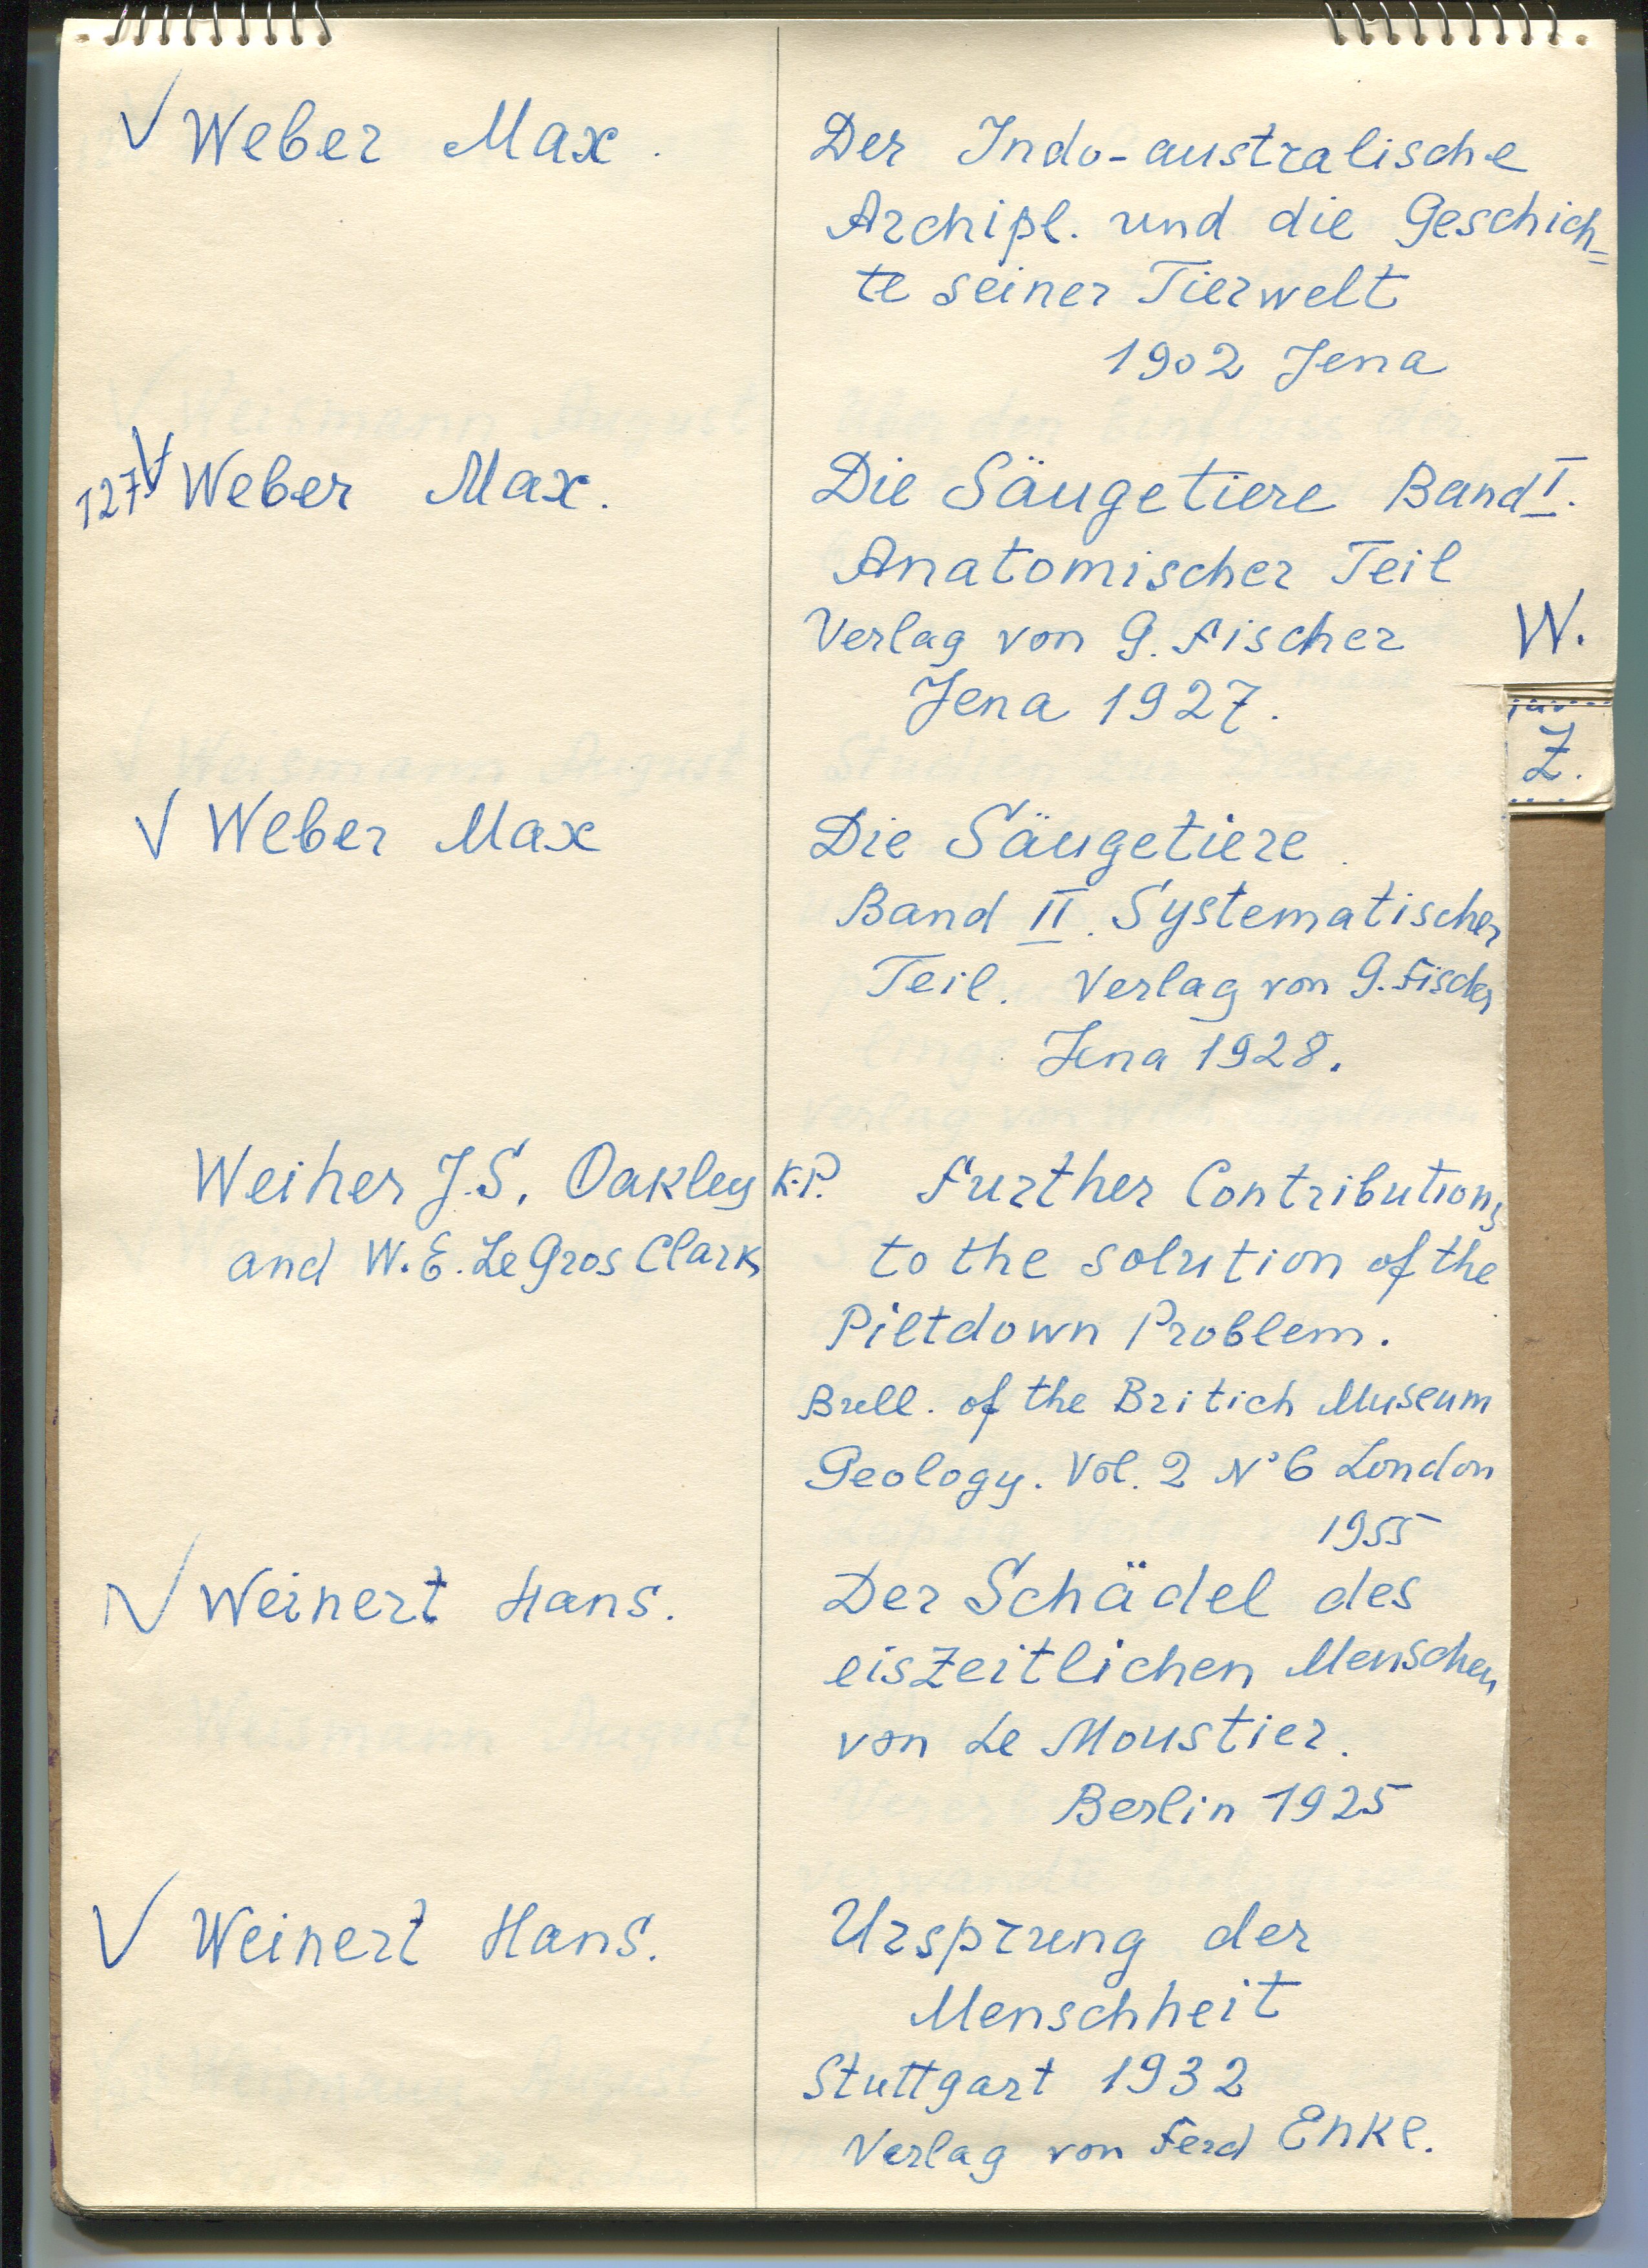 √ Weber Max.
Der Indo-australische
Archipl. und die Geschich=
te seiner Tierwelt
1902 Jena
127 √ Weber Max.
Die Säugetiere Band I.
Anatomischer Teil
Verlag von G. Fischer
Jena 1927.
W.
Z.
√ Weber Max
Die Säugetiere.
Band II. Systematischer
Teil. Verlag von G. Fischer
Jena 1928.
Weiher J.S. Oakley K.P.
and W.E. Le Gros Clark
Further Contributions
to the solution of the
Piltdown Problem.
Bull. of the Britich Museum
Geology. Vol. 2 N°6 London
1955
√ Weinert Hans.
Der Schädel des
eiszeitlichen Menschen
von Le Moustier.
Berlin 1925
√ Weinert Hans.
Ursprung der
Menschheit
Stuttgart 1932
Verlag von Ferd Enke.